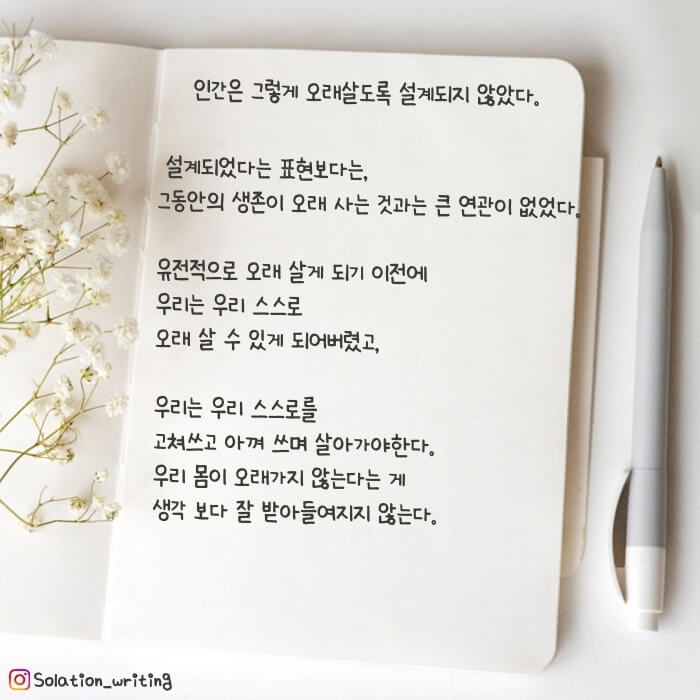 인간은 그렇게 오래살도록 설계되지 않았다.
설계되었다는 표현보다는,
그동안의 생존이 오래 사는 것과는 큰 연관이 없었다.
유전적으로 오래 살게 되기 이전에
우리는 우리 스스로
오래 살 수 있게 되어버렸고,
우리는 우리 스스로를
고쳐쓰고 아껴 쓰며 살아가야한다.
우리 몸이 오래가지 않는다는 게
생각 보다 잘 받아들여지지 않는다.
Solation_writing